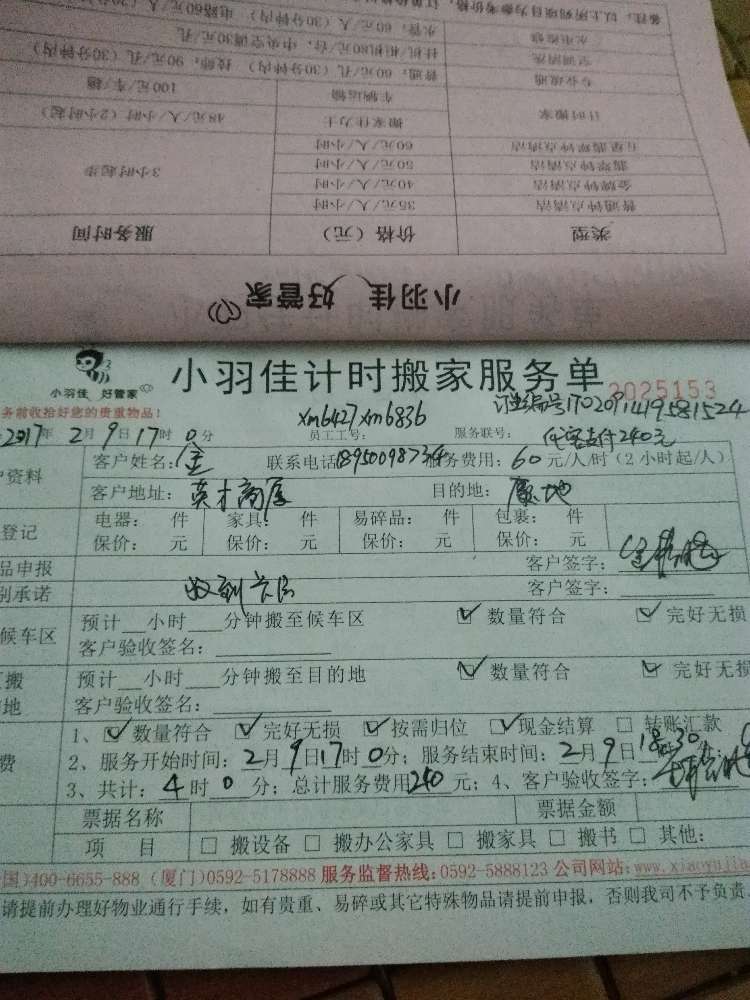 备注：以上所列项目为参考价格，订单价
水电检修 水管：60元/人（30分钟内） 电路60元/人（30分钟内）
空调清洗 挂机/柜机80元/台，中央空调30元/孔
专业疏通 普通：60元（30分钟内）/孔 技师：90元/孔（30分钟内）
计时搬家 搬家佳力士 48元/人/小时（2小时起）
车辆运输 100元/车/趟
石显翡翠钟点清洁 60元/人/小时
翡翠钟点清洁 50元/人/小时 3小时起步
金牌钟点清洁 40元/人/小时
普通钟点清洁 35元/人/小时
类型 价格（元） 服务时间
小羽佳 好管家
小羽佳 好管家
小羽佳计时搬家服务单
2025153
务前收拾好您的贵重物品！
xm6427 xm6836
订单编号1702091419581524
2017年2月9日17时0分 员工工号： 服务联号：
代客支付240元
户资料 客户姓名：金 联系电话 服务费用：60元/人/时（2小时起/人）
客户地址：英才商厦 目的地：原地
登记 电器： 件 家具： 件 易碎品： 件 包裹： 件
保价： 元 保价： 元 保价： 元 保价： 元
品申报 客户签字：
别承诺 客户签字：
候车区 预计__小时___分钟搬至候车区 ☑数量符合 ☑完好无损
客户验收签名：
搬 预计__小时___分钟搬至目的地 ☑数量符合 ☑完好无损
地 客户验收签名：
费 1、☑数量符合 ☑完好无损 ☑按需归位 ☑现金结算 □转账汇款
2、服务开始时间：2月9日17时0分；服务结束时间：2月9日18时30
3、共计：4时0分；总计服务费用240元；4、客户验收签字：
票据名称 票据金额
项 目 □搬设备 □搬办公家具 □搬家具 □搬书 □其他：
国)400-6655-888 (厦门)0592-5178888 服务监督热线:0592-5888123 公司网站:www.xiaoyujia
请提前办理好物业通行手续，如有贵重、易碎或其它特殊物品请提前申报，否则我司不予负责